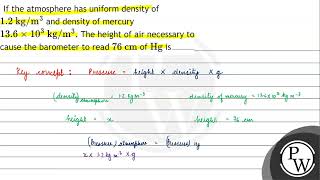 If the atmosphere has uniform density of
1.2 kg/m³ and density of mercury
13.6 × 10³ kg/m³. The height of air necessary to
cause the barometer to read 76 cm of Hg is
Key concept : Pressure = height × density × g
(density)atmosphere = 1.2 kg m⁻³ density of mercury = 13.6 × 10³ kg m⁻³
height = x height = 76 cm
(Pressure) atmosphere = (Pressure) Hg
x × 1.2 kg m⁻³ × g
PW